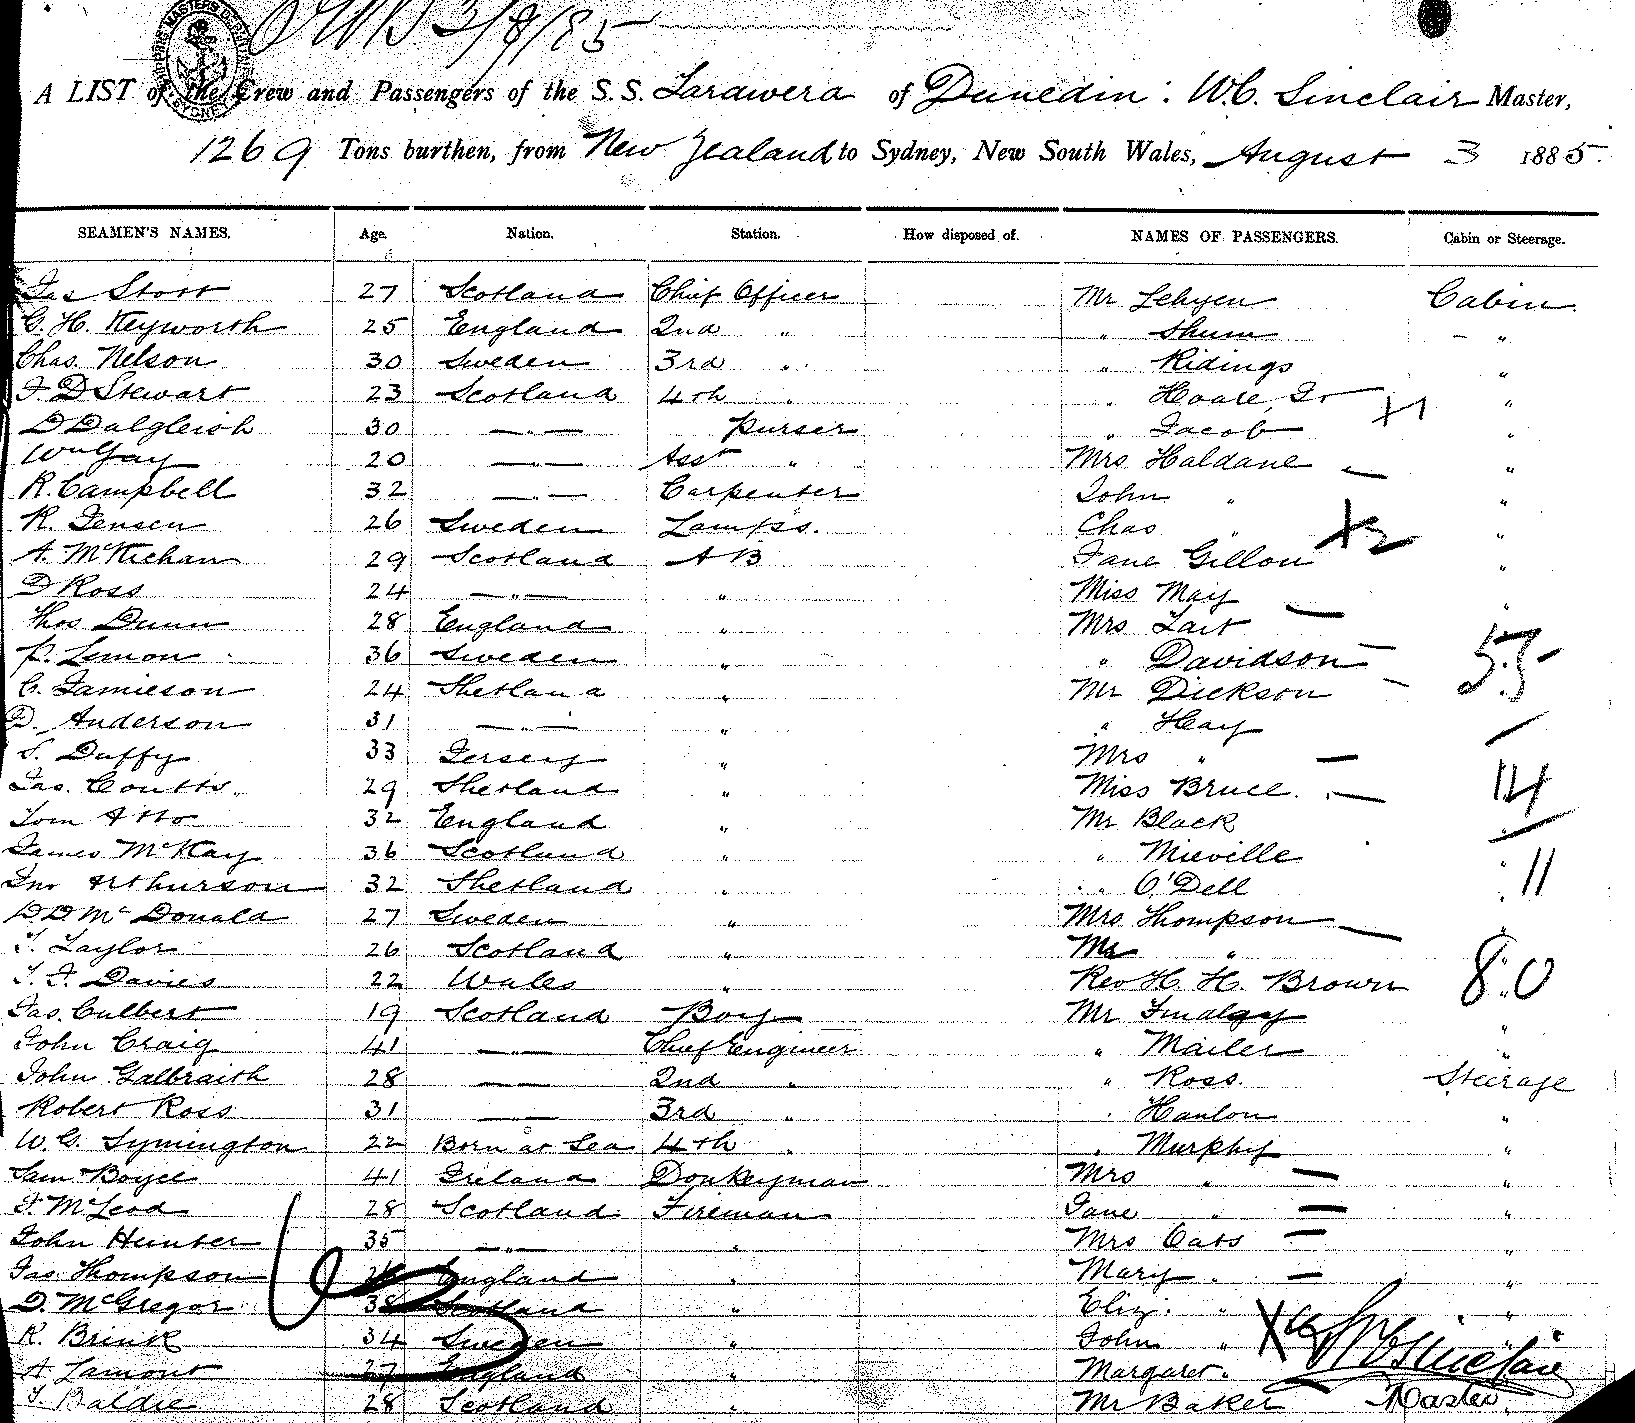 3/8/85
A LIST of the Crew and Passengers of the S.S. Tarawera of Dunedin: W.C. Sinclair Master,
1269 Tons burthen, from New Zealand to Sydney, New South Wales, August 3 1885.
SEAMEN'S NAMES. Age. Nation. Station. How disposed of. NAMES OF PASSENGERS. Cabin or Steerage.
Jas Stott 27 Scotland Chief Officer Mr Cabin
G. H. Keyworth 25 England 2nd " " Shum "
Chas. Nelson 30 Sweden 3rd " " Ridings "
J. D Stewart 23 Scotland 4th " " Hoare, Jr "
D Dalgleish 30 —"— Purser " Jacob X1 "
Wm Gay 20 —"— Asst " Mrs Haldane — "
R. Campbell 32 —"— Carpenter John " "
R. Jensen 26 Sweden Lamps. Chas " X2 "
A. McKichan 29 Scotland A B Jane Gillon "
D Ross 24 —"— " Miss May — "
Thos Dunn 28 England " Mrs Tait
P. Lemon 36 Sweden " " Davidson — 55
C. Jamieson 24 Shetland " Mr Dickson —
D. Anderson 31 —"— " " Hay
S. Duffy 33 Jersey " Mrs " —
Jas. Coutts. 29 Shetland " Miss Bruce. — 14
Tom Atto 32 England " Mr Black
James McKay 36 Scotland " " Mieville
Jno Arthurson 32 Shetland " " O'Dell 11
D D McDonald 27 Sweden " Mrs Thompson —
T. Taylor 26 Scotland " Mr "
T. J. Davies 22 Wales " Rev H. H. Brown 80
Jas. Culbert 19 Scotland Boy Mr "
John Craig 41 —"— Chief Engineer " Mailer "
John Galbraith 28 —"— 2nd " " Ross. Steerage
Robert Ross 31 —"— 3rd " " Hanlon "
W. G. Symington 22 Born at Sea 4th " " Murphy "
Sam Boyce 41 Ireland Donkeyman Mrs " — "
J. McLeod 28 Scotland Fireman Jane " — "
John Hunter 35 —"— " Mrs Oats — "
Jas. Thompson England " Mary " — "
D. McGregor 38 Scotland " Eliz. " "
R. Brink 34 Sweden " John " "
A Lamont 27 England " Margaret " W C Sinclair
T. Baldie 28 Scotland " Mr Baker Master